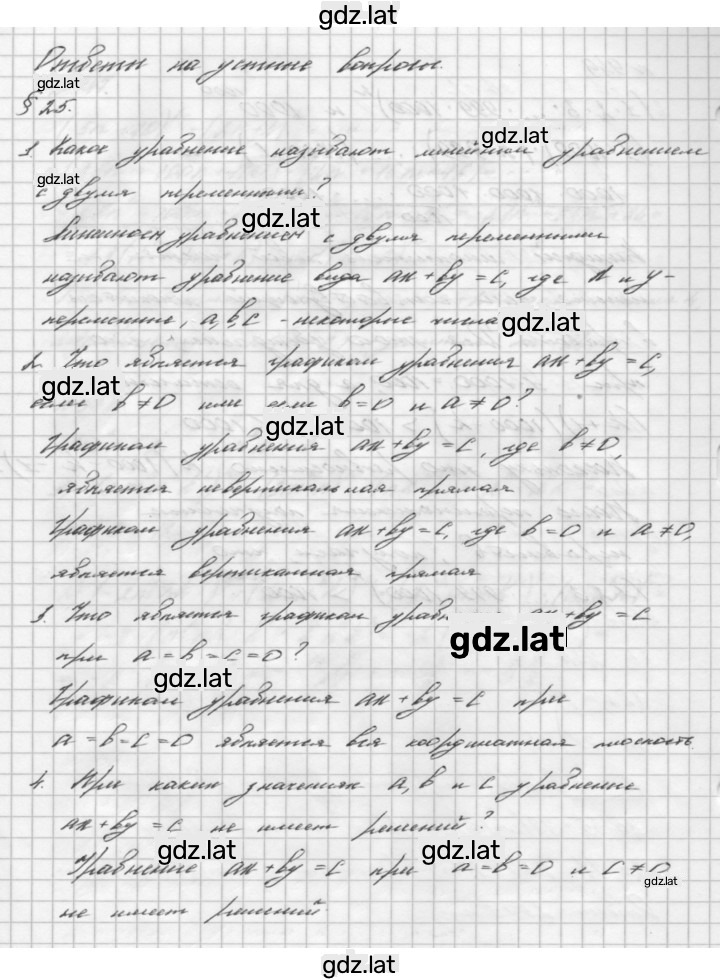 gdz.lat
Ответы на устные вопросы.
gdz.lat
§ 25.
gdz.lat
1. Какое уравнение называют линейным уравнением
gdz.lat
с двумя переменными?
gdz.lat
Линейным уравнением с двумя переменными
называют уравнение вида ax + by = c, где x и y -
переменные, a, b, c - некоторые числа
gdz.lat
2. Что является графиком уравнения ax + by = c,
gdz.lat
если b ≠ 0 или если b = 0 и a ≠ 0?
gdz.lat
Графиком уравнения ax + by = c, где b ≠ 0,
является невертикальная прямая
Графиком уравнения ax + by = c, где b = 0 и a ≠ 0,
является вертикальная прямая
3. Что является графиком ax + by = c
gdz.lat
при a = b = c = 0?
gdz.lat
Графиком уравнения ax + by = c при
a = b = c = 0 является вся координатная плоскость.
4. При каких значениях a, b и c уравнение
ax + by = c не имеет решений?
gdz.lat gdz.lat
Уравнение ax + by = c при a = b = 0 и c ≠ 0
gdz.lat
не имеет решений.
gdz.lat